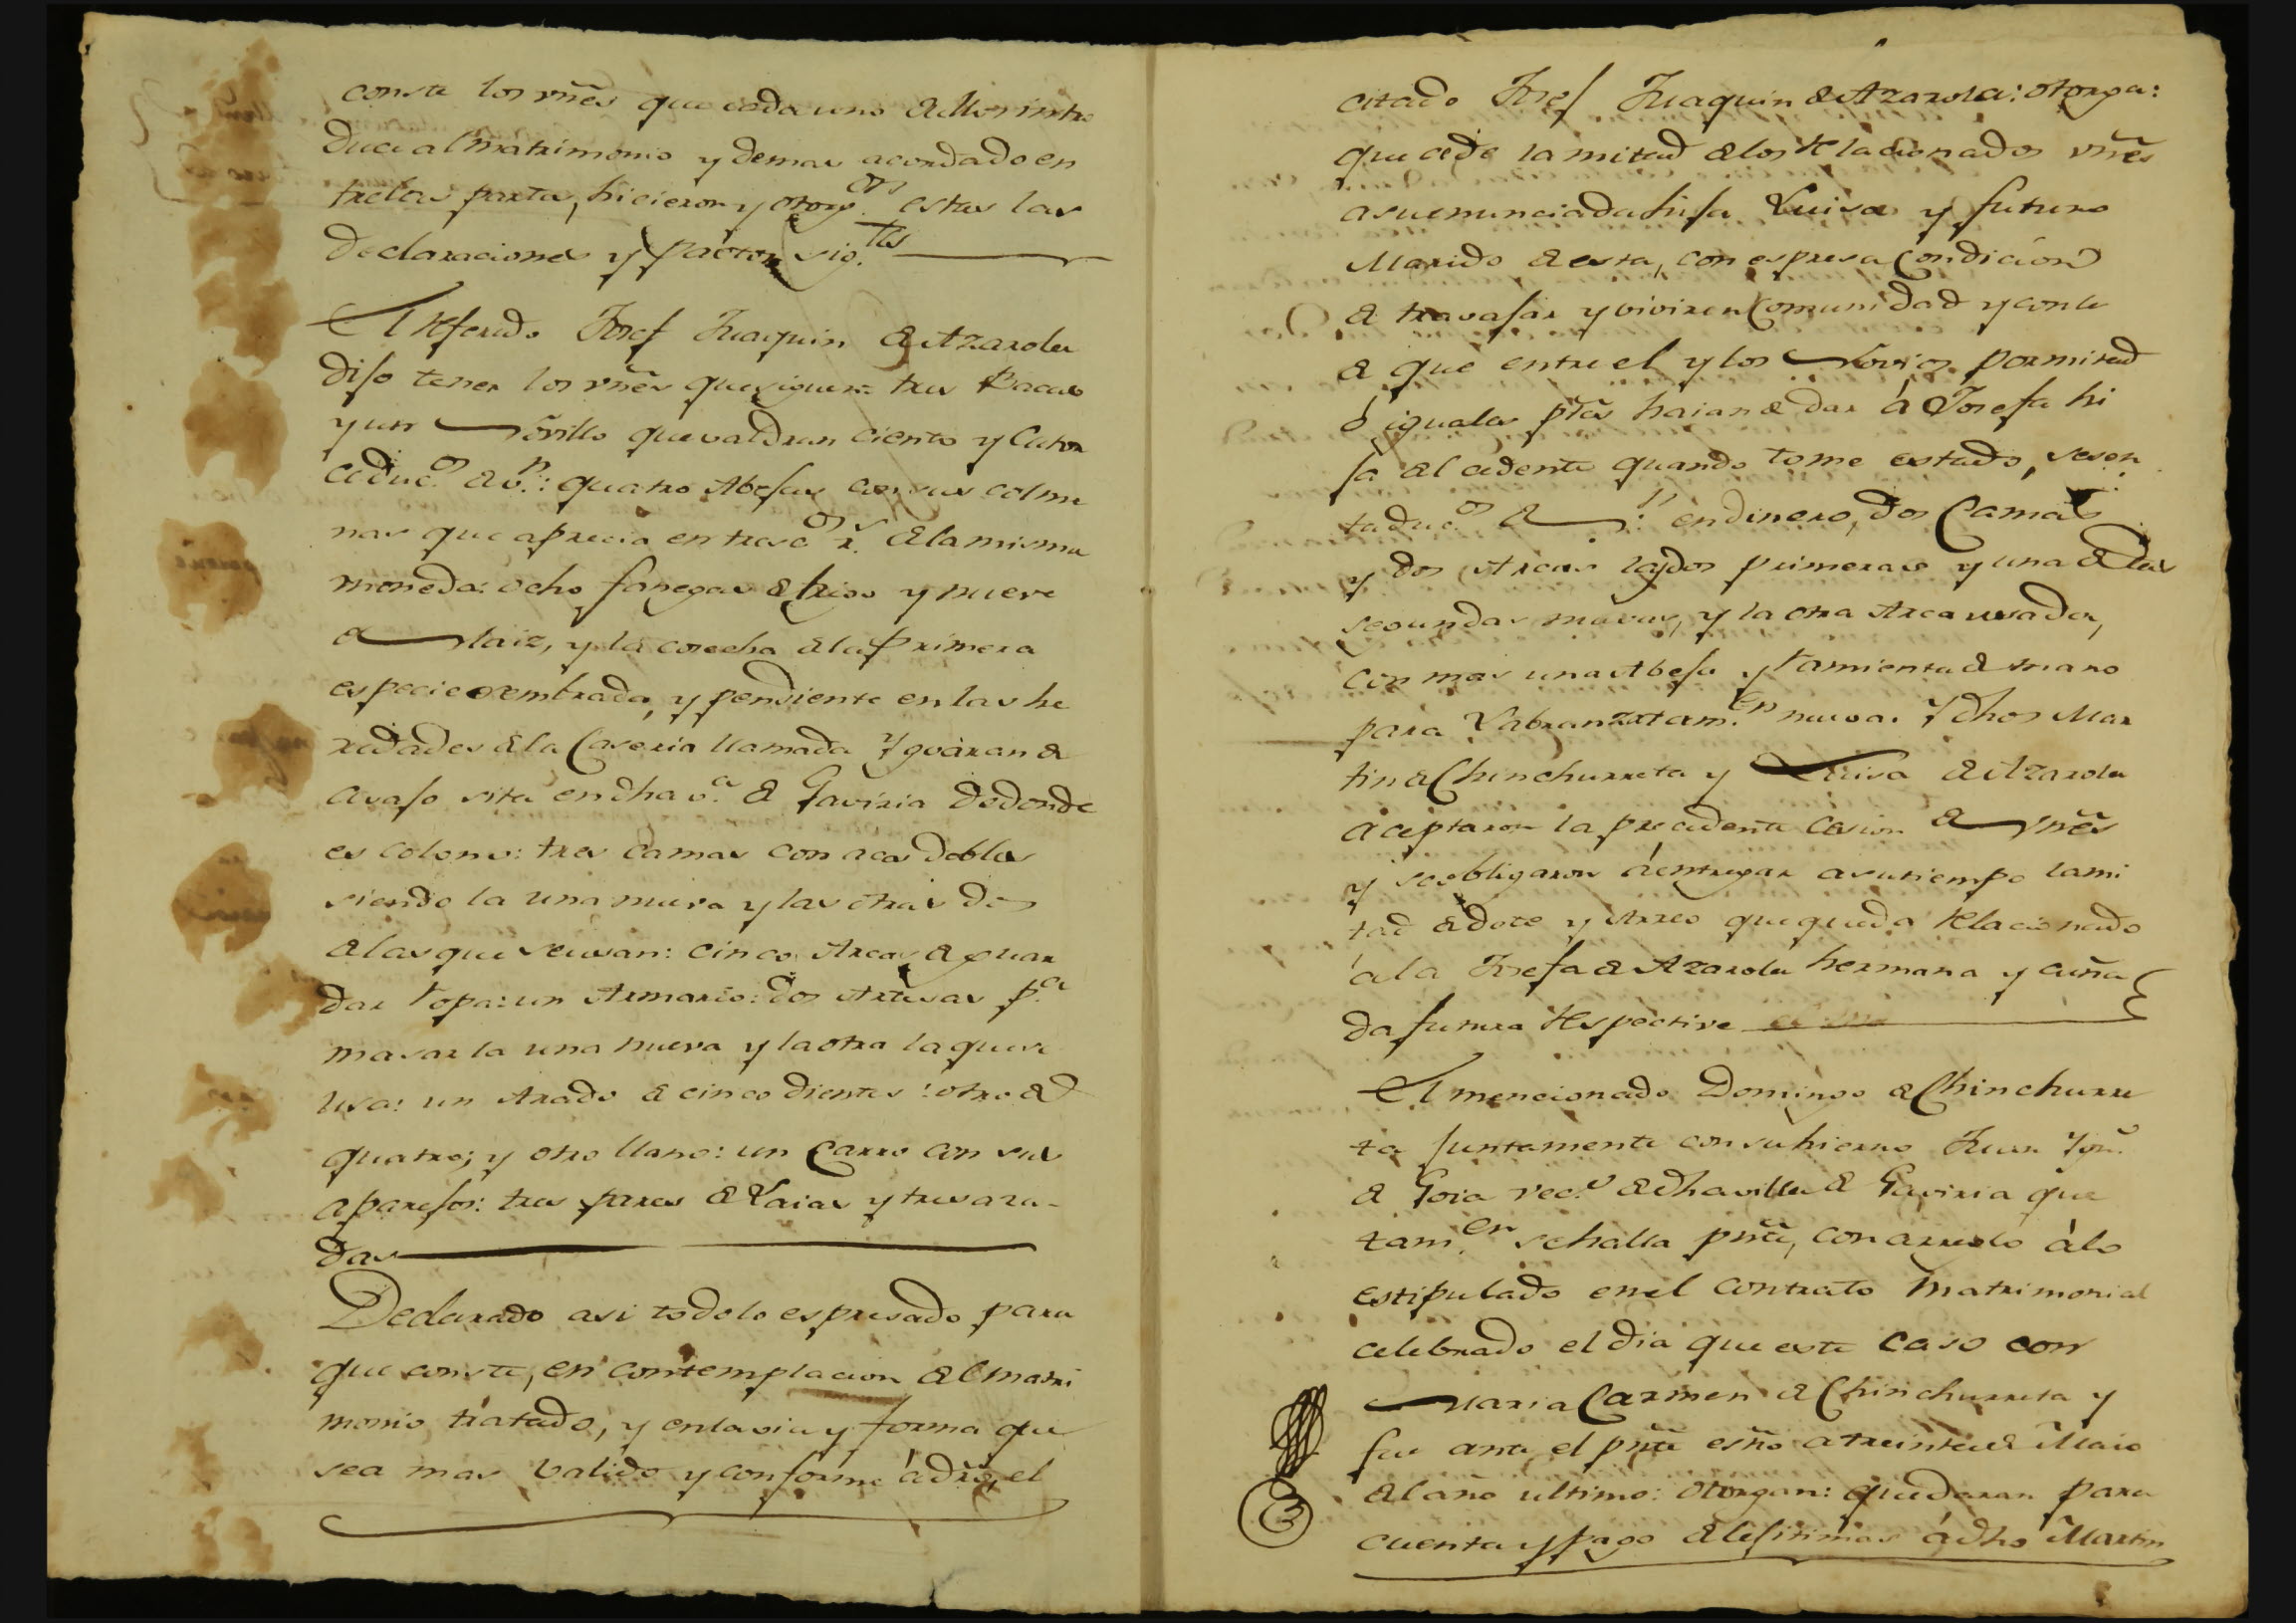 conste los vñes que cada uno de ellos intro
duce al matrimonio y demas acordado en
tre las partes, hicieron y otorg.on estas las
declaraciones y pactos sig.tes
El referido Josef Juaquin de Azarola
dijo tener los vñes que siguen: tres Bacas
y un Novillo que valdran ciento y cator
ce duc.os de v.n: quatro Abejas con sus colme
nas que aprecia en trece d.os r.s de la misma
moneda: ocho fanegas de trigo y nueve
de Maiz, y la cosecha de la primera
especie sembrada, y pendiente en las he
redades de la Caseria llamada Yguaran de
avajo sita en dha v.a de Gaviria de donde
es colono: tres camas con acas dobles
siendo la una nueva y las otras dos
de las que se usan: cinco Arcas de guar
dar ropa: un Armario: dos Artesas p.a
masar la una nueva y la otra la que se
usa: un Arado de cinco dientes: otro de
quatro; y otro llano: un Carro con sus
aparejos: tres pares de Laias y tres aza-
das
Declarado asi todo lo espresado para
que conste, en contemplacion del matri
monio tratado, y en la via y forma que
sea mas valido y conforme á dro, el
citado Josef Juaquin de Azarola: otorga:
que cede la mitad de los relacionados vñes
a su enunciada hija Luisa y futuro
Marido de esta, con espresa Condicion
de travajar y vivir en Comunidad y con la
de que entre el y los Novios por mitad
ó iguales ptes haian de dar á Josefa hi
ja del cedente quando tome estado, sesen
ta duc.os de v.n en dinero, dos Camas
y dos Arcas las dos primeras y una de las
segundas nuevas, y la otra Arca usada,
con mas una Abeja y rramienta de mano
para Labranza tam.en nueva. Y dhos Mar
tin de Chinchurreta y Luisa de Azarola
aceptaron la precedente cesion de vñes
y se obligaron á entregar a su tiempo la mi
tad de dote y Arreo que queda relacionado
á la Josefa de Azarola hermana y cuña
da futura respective
El mencionado Domingo de Chinchurre
ta juntamente con su hierno Juan Ygn.o
de Goia vec.o de dha villa de Gaviria que
tam.en se halla pnte, con arreglo á lo
estipulado en el contrato matrimonial
celebrado el dia que este caso con
Maria Carmen de Chinchurreta y
fue ante el pnte esño a treinta de Maio
del año ultimo: otorgan: quedaran para
cuenta y pago de lejitimas á dho Martin
3